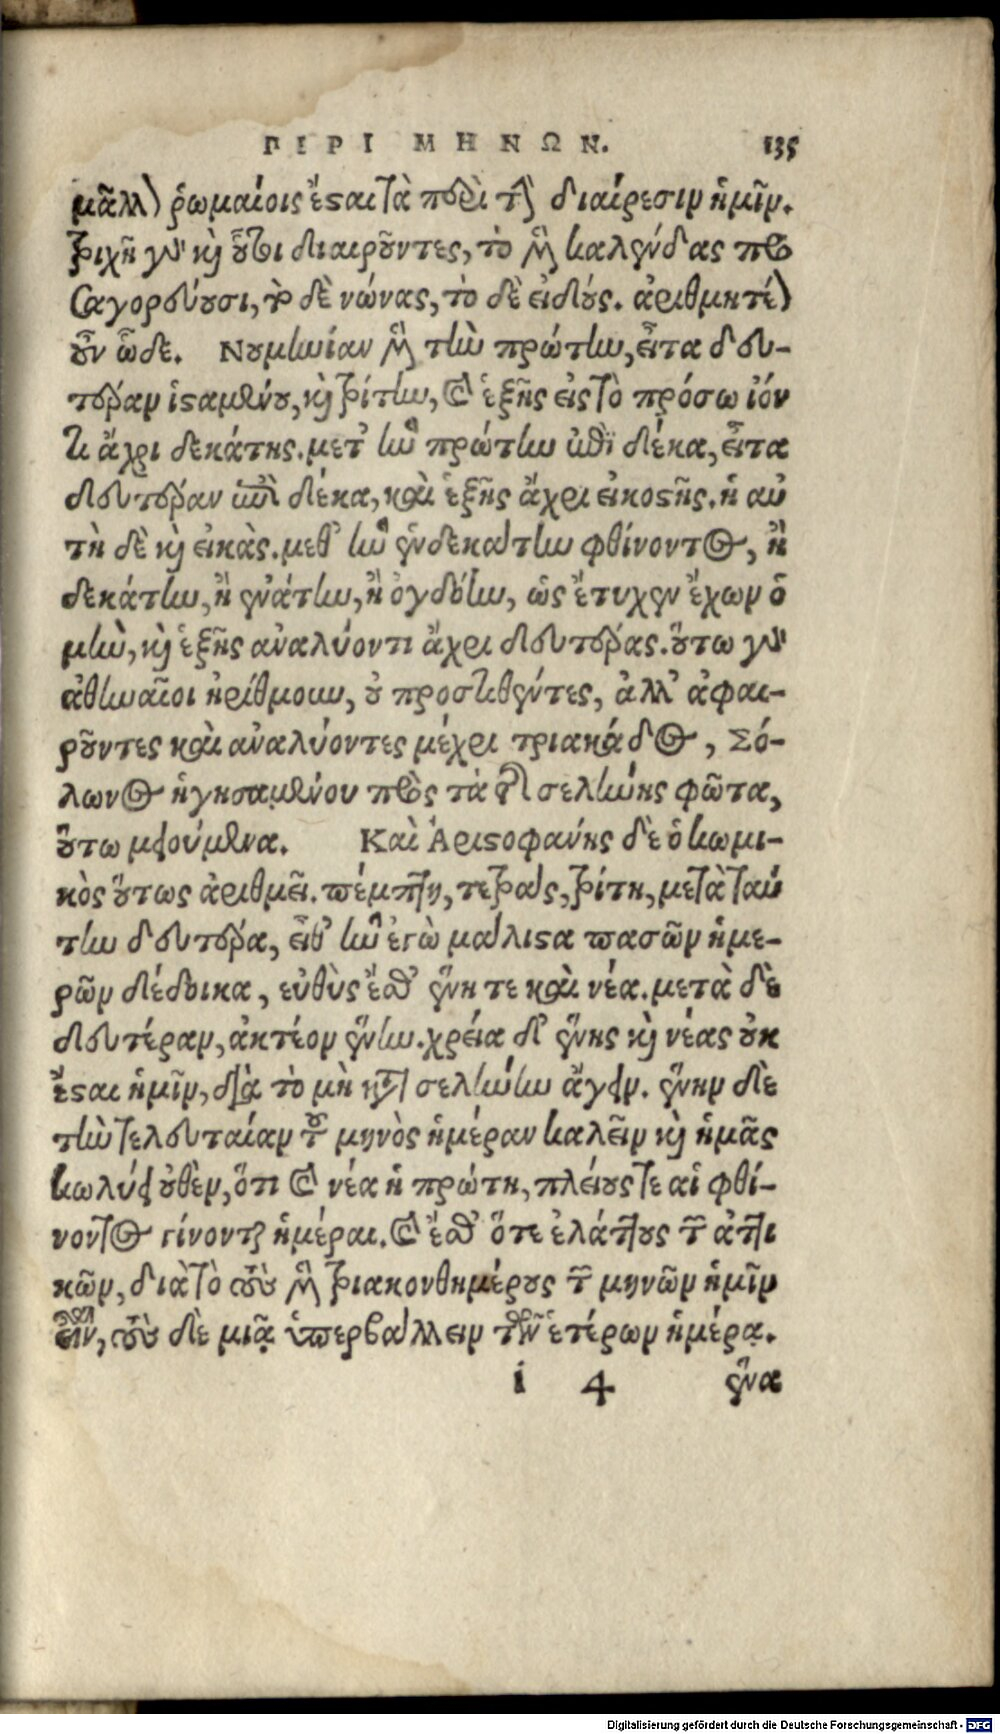 ΠΕΡΙ ΜΗΝΩΝ. 135
μᾶλλον ῥωμαίοις ἔσται τὰ περὶ τὴν διαίρεσιν ἡμῖν.
τριχῆ γὰρ καὶ οὗτοι διαιροῦντες, τὸ μὲν καλένδας προ
σαγορεύουσι, τὸ δὲ νώνας, τὸ δὲ εἰδούς. ἀριθμητέον
οὖν ὧδε. Νουμηνίαν μὲν τὴν πρώτην, εἶτα δευ-
τέραν ἱσταμένου, καὶ τρίτην, καὶ ἑξῆς εἰς τὸ πρόσω ἰόν
τι ἄχρι δεκάτης. μεθ' ἣν πρώτην ἐπὶ δέκα, εἶτα
δευτέραν ἐπὶ δέκα, καὶ ἑξῆς ἄχρι εἰκοστῆς. ἡ αὐ
τὴ δὲ καὶ εἰκὰς. μεθ' ἣν ἑνδεκάτην φθίνοντος, ἢ
δεκάτην, ἢ ἐνάτην, ἢ ὀγδόην, ὡς ἔτυχεν ἔχων ὁ
μὴν, καὶ ἑξῆς ἀναλύοντι ἄχρι δευτέρας. οὕτω γὰρ
ἀθηναῖοι ἠρίθμουν, οὐ προστιθέντες, ἀλλ' ἀφαι-
ροῦντες καὶ ἀναλύοντες μέχρι τριακάδος, Σό-
λωνος ἡγησαμένου πρὸς τὰ τῆς σελήνης φῶτα,
οὕτω μειούμενα. Καὶ Ἀριστοφάνης δὲ ὁ κωμι-
κὸς οὕτως ἀριθμεῖ. πέμπτη, τετρὰς, τρίτη, μετὰ ταύ
την δευτέρα, εἶθ' ἣν ἐγὼ μάλιστα πασῶν ἡμε-
ρῶν δέδοικα, εὐθὺς ἔσθ' ἕνη τε καὶ νέα. μετὰ δὲ
δευτέραν, ἀκτέον ἕνην. χρεία δ' ἕνης καὶ νέας οὐκ
ἔσται ἡμῖν, διὰ τὸ μὴ κατὰ σελήνην ἄγειν. ἕνην δὲ
τὴν τελευταίαν τοῦ μηνὸς ἡμέραν καλεῖν καὶ ἡμᾶς
κωλύει οὐθὲν, ὅτι καὶ νέα ἡ πρώτη, πλείους τε αἱ φθί-
νοντος γίνονται ἡμέραι. καὶ ἔσθ' ὅτε ἐλάττους τῶν ἀττι
κῶν, διὰ τὸ τοὺς μὲν τριακονθημέρους τῶν μηνῶν ἡμῖν
εἶναι, τοὺς δὲ μιᾷ ὑπερβάλλειν τῶν ἑτέρων ἡμέρᾳ.
i 4 ἕνα
Digitalisierung gefördert durch die Deutsche Forschungsgemeinschaft - DFG